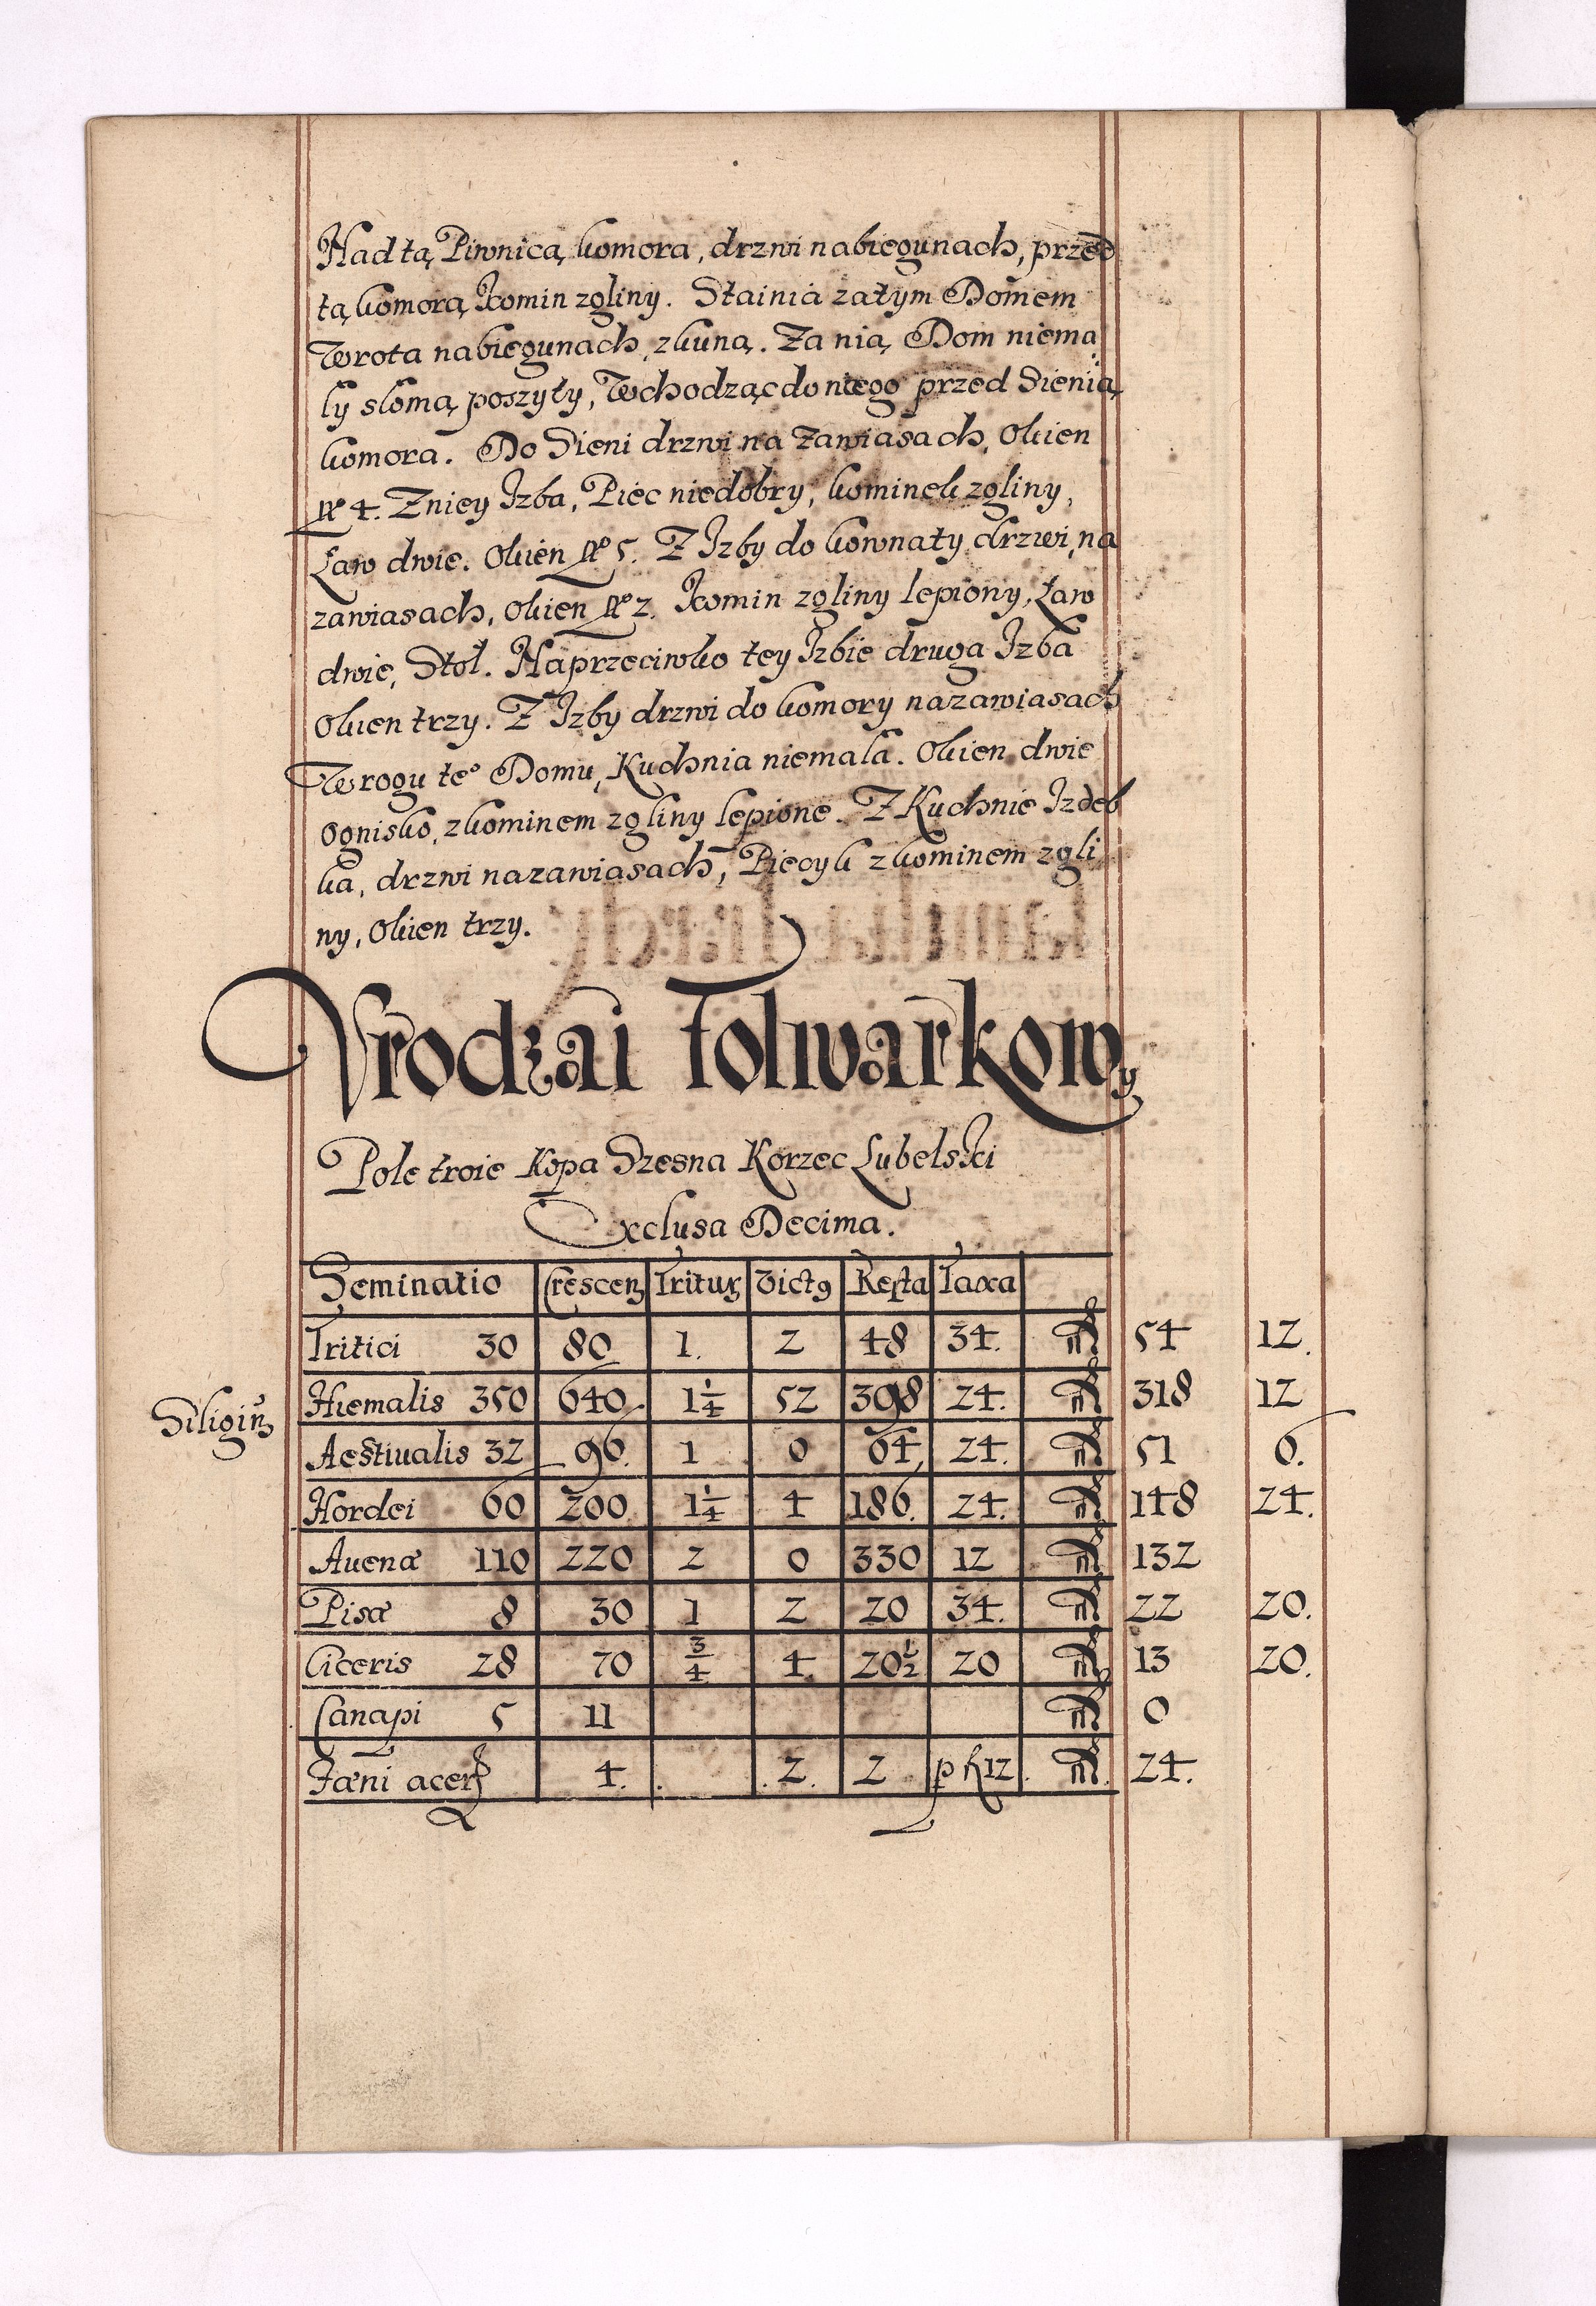 Nad tą Piwnicą komora, drzwi na biegunach, przed
tą komorą Komin z gliny. Stainia za tym Domem
Wrota na biegunach, z kuną. Za nią Dom niema
ly slomą poszyty, Wchodząc do niego przed Sienią
komora. Do Sieni drzwi na zawiasach, Okien
No 4. Z niey Izba, Piec niedobry, kominek z gliny,
Ław dwie. Okien No 5. Z Izby do kownaty drzwi na
zawiasach, Okien No 2. Komin z gliny lepiony, Ław
dwie, Stoł. Naprzeciwko tey Izbie druga Izba
Okien trzy. Z Izby drzwi do komory na zawiasach
W rogu te° Domu, Kuchnia niemala. Okien dwie
Ognisko, z kominem z gliny lepione. Z Kuchnie Izdeb
ka, drzwi na zawiasach, Piecyk z kominem z gli
ny, Okien trzy.
Vrodzai Folwarkowy
Pole troie Kopa Szesna Korzec Lubelski
Exclusa Decima.
Seminatio Crescen Tritur Vict9 Resta Taxa
Tritici 30 80 1. 2 48 34. fl 54 12.
Siligin Hiemalis 350 640 1 1/4 52 398 24. fl 318 12
Aestiualis 32 96. 1 0 64 24. fl 51 6.
Hordei 60 200 1 1/4 4 186. 24. fl 148 24.
Auenæ 110 220 2 0 330 12 fl 132
Pisæ 8 30 1 2 20 34. fl 22 20.
Ciceris 28 70 3/4 4. 20 1/2 20 fl 13 20.
Canapi 5 11 fl 0
Fæni acer 4. 2. 2 p fl 12. fl 24.